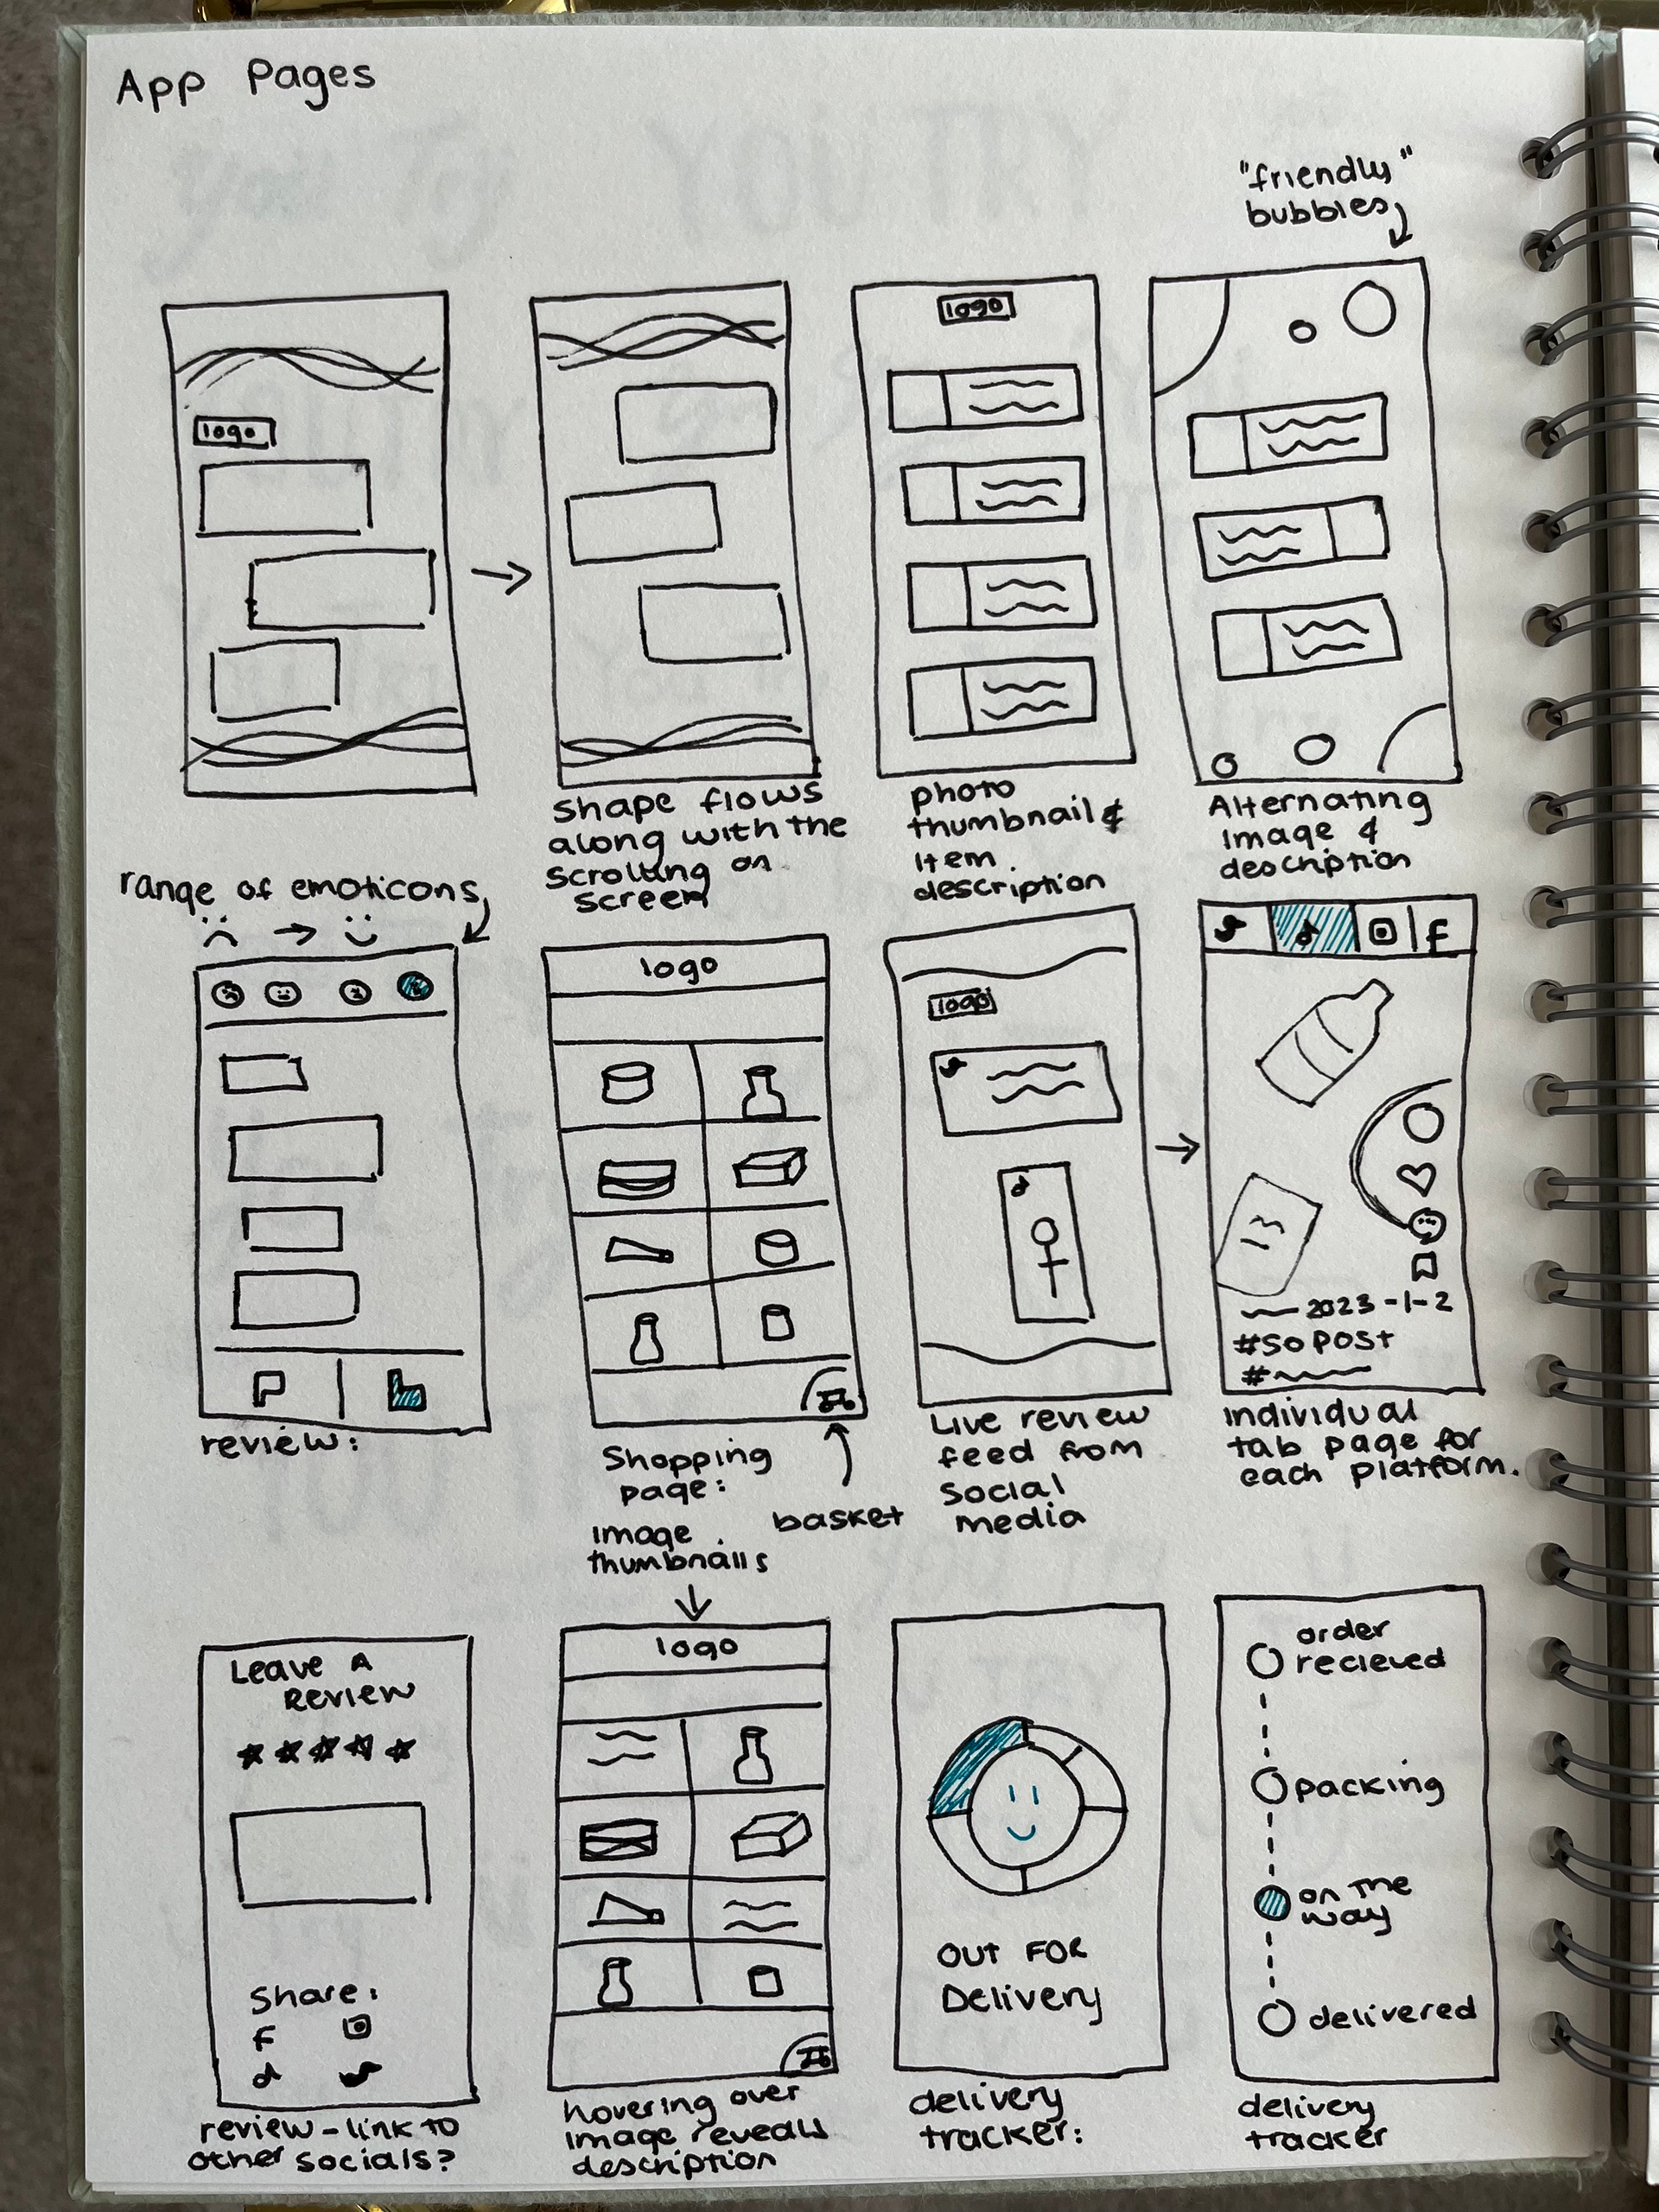 App Pages
"friendly"
bubbles
logo
logo
shape flows
along with the
scrolling on
screen
photo
thumbnail &
item
description
Alternating
image &
description
range of emoticons
review:
logo
Shopping
page:
image
thumbnails
basket
logo
Live review
feed from
social
media
f
2023-1-2
#SOPOST
#
individual
tab page for
each platform.
Leave A
Review
Share:
f
review - link to
other socials?
logo
hovering over
image reveals
description
OUT FOR
Delivery
delivery
tracker:
order
recieved
packing
on the
way
delivered
delivery
tracker